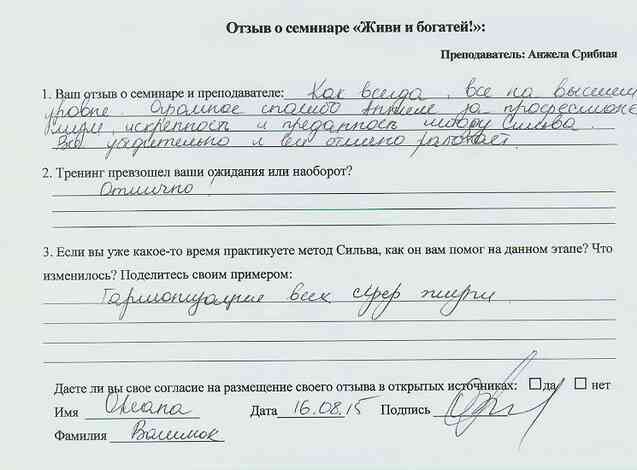 Отзыв о семинаре «Живи и богатей!»:
Преподаватель: Анжела Срибная
1. Ваш отзыв о семинаре и преподавателе: Как всегда, все на высшем
уровне. Огромное спасибо Анжеле за профессиона
лизм, искренность и преданность методу Сильва.
Всё удивительно и всё отлично работает.
2. Тренинг превзошел ваши ожидания или наоборот?
Отлично!
3. Если вы уже какое-то время практикуете метод Сильва, как он вам помог на данном этапе? Что
изменилось? Поделитесь своим примером:
Гармонизация всех сфер жизни.
Даете ли вы свое согласие на размещение своего отзыва в открытых источниках: да нет
Имя Оксана Дата 16.08.15 Подпись
Фамилия